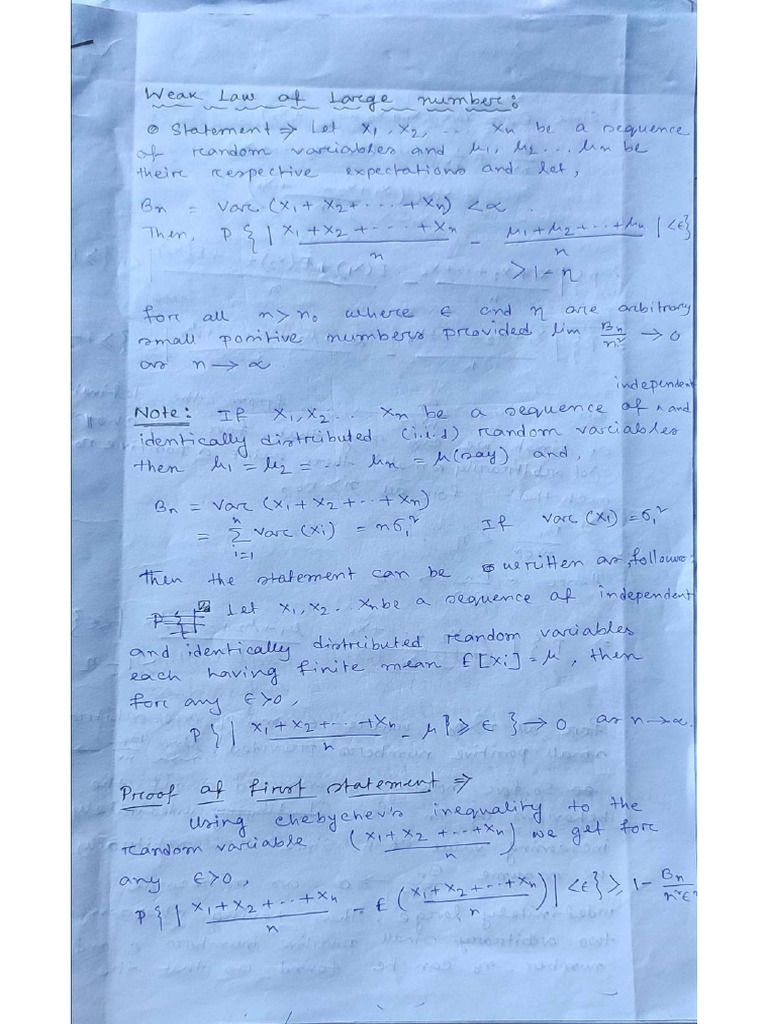 Weak Law of Large number:
Statement ⇒ Let X₁, X₂, ... Xₙ be a sequence
of random variables and μ₁, μ₂ ... μₙ be
their respective expectations and let,
Bₙ = Var (X₁ + X₂ + ... + Xₙ) < ∝
Then, P { | X₁ + X₂ + ... + Xₙ / n - μ₁ + μ₂ + ... + μₙ / n | < ε }
> 1 - η
for all n > n₀ where ε and η are arbitrary
small positive numbers provided lim Bₙ/n² → 0
as n → ∝
independent
Note: If X₁, X₂ ... Xₙ be a sequence of ∧ and
identically distributed (i.i.d) random variables
then μ₁ = μ₂ = ... μₙ = μ (say) and,
Bₙ = Var (X₁ + X₂ + ... + Xₙ)
= Σᵢ₌₁ⁿ Var (Xi) = nσ₁² If Var (X₁) = σ₁²
then the statement can be written as follows:
Let X₁, X₂ .. Xₙ be a sequence of independent
and identically distributed random variables
each having finite mean E[Xi] = μ, then
for any ε > 0,
P { | X₁ + X₂ + ... + Xₙ / n - μ | ≥ ε } → 0 as n → ∝.
Proof of first statement ⇒
Using chebychev's inequality to the
random variable (X₁ + X₂ + ... + Xₙ / n) we get for
any ε > 0,
P { | X₁ + X₂ + ... + Xₙ / n - E (X₁ + X₂ + ... + Xₙ / n) | < ε } ≥ 1 - Bₙ / n²ε²